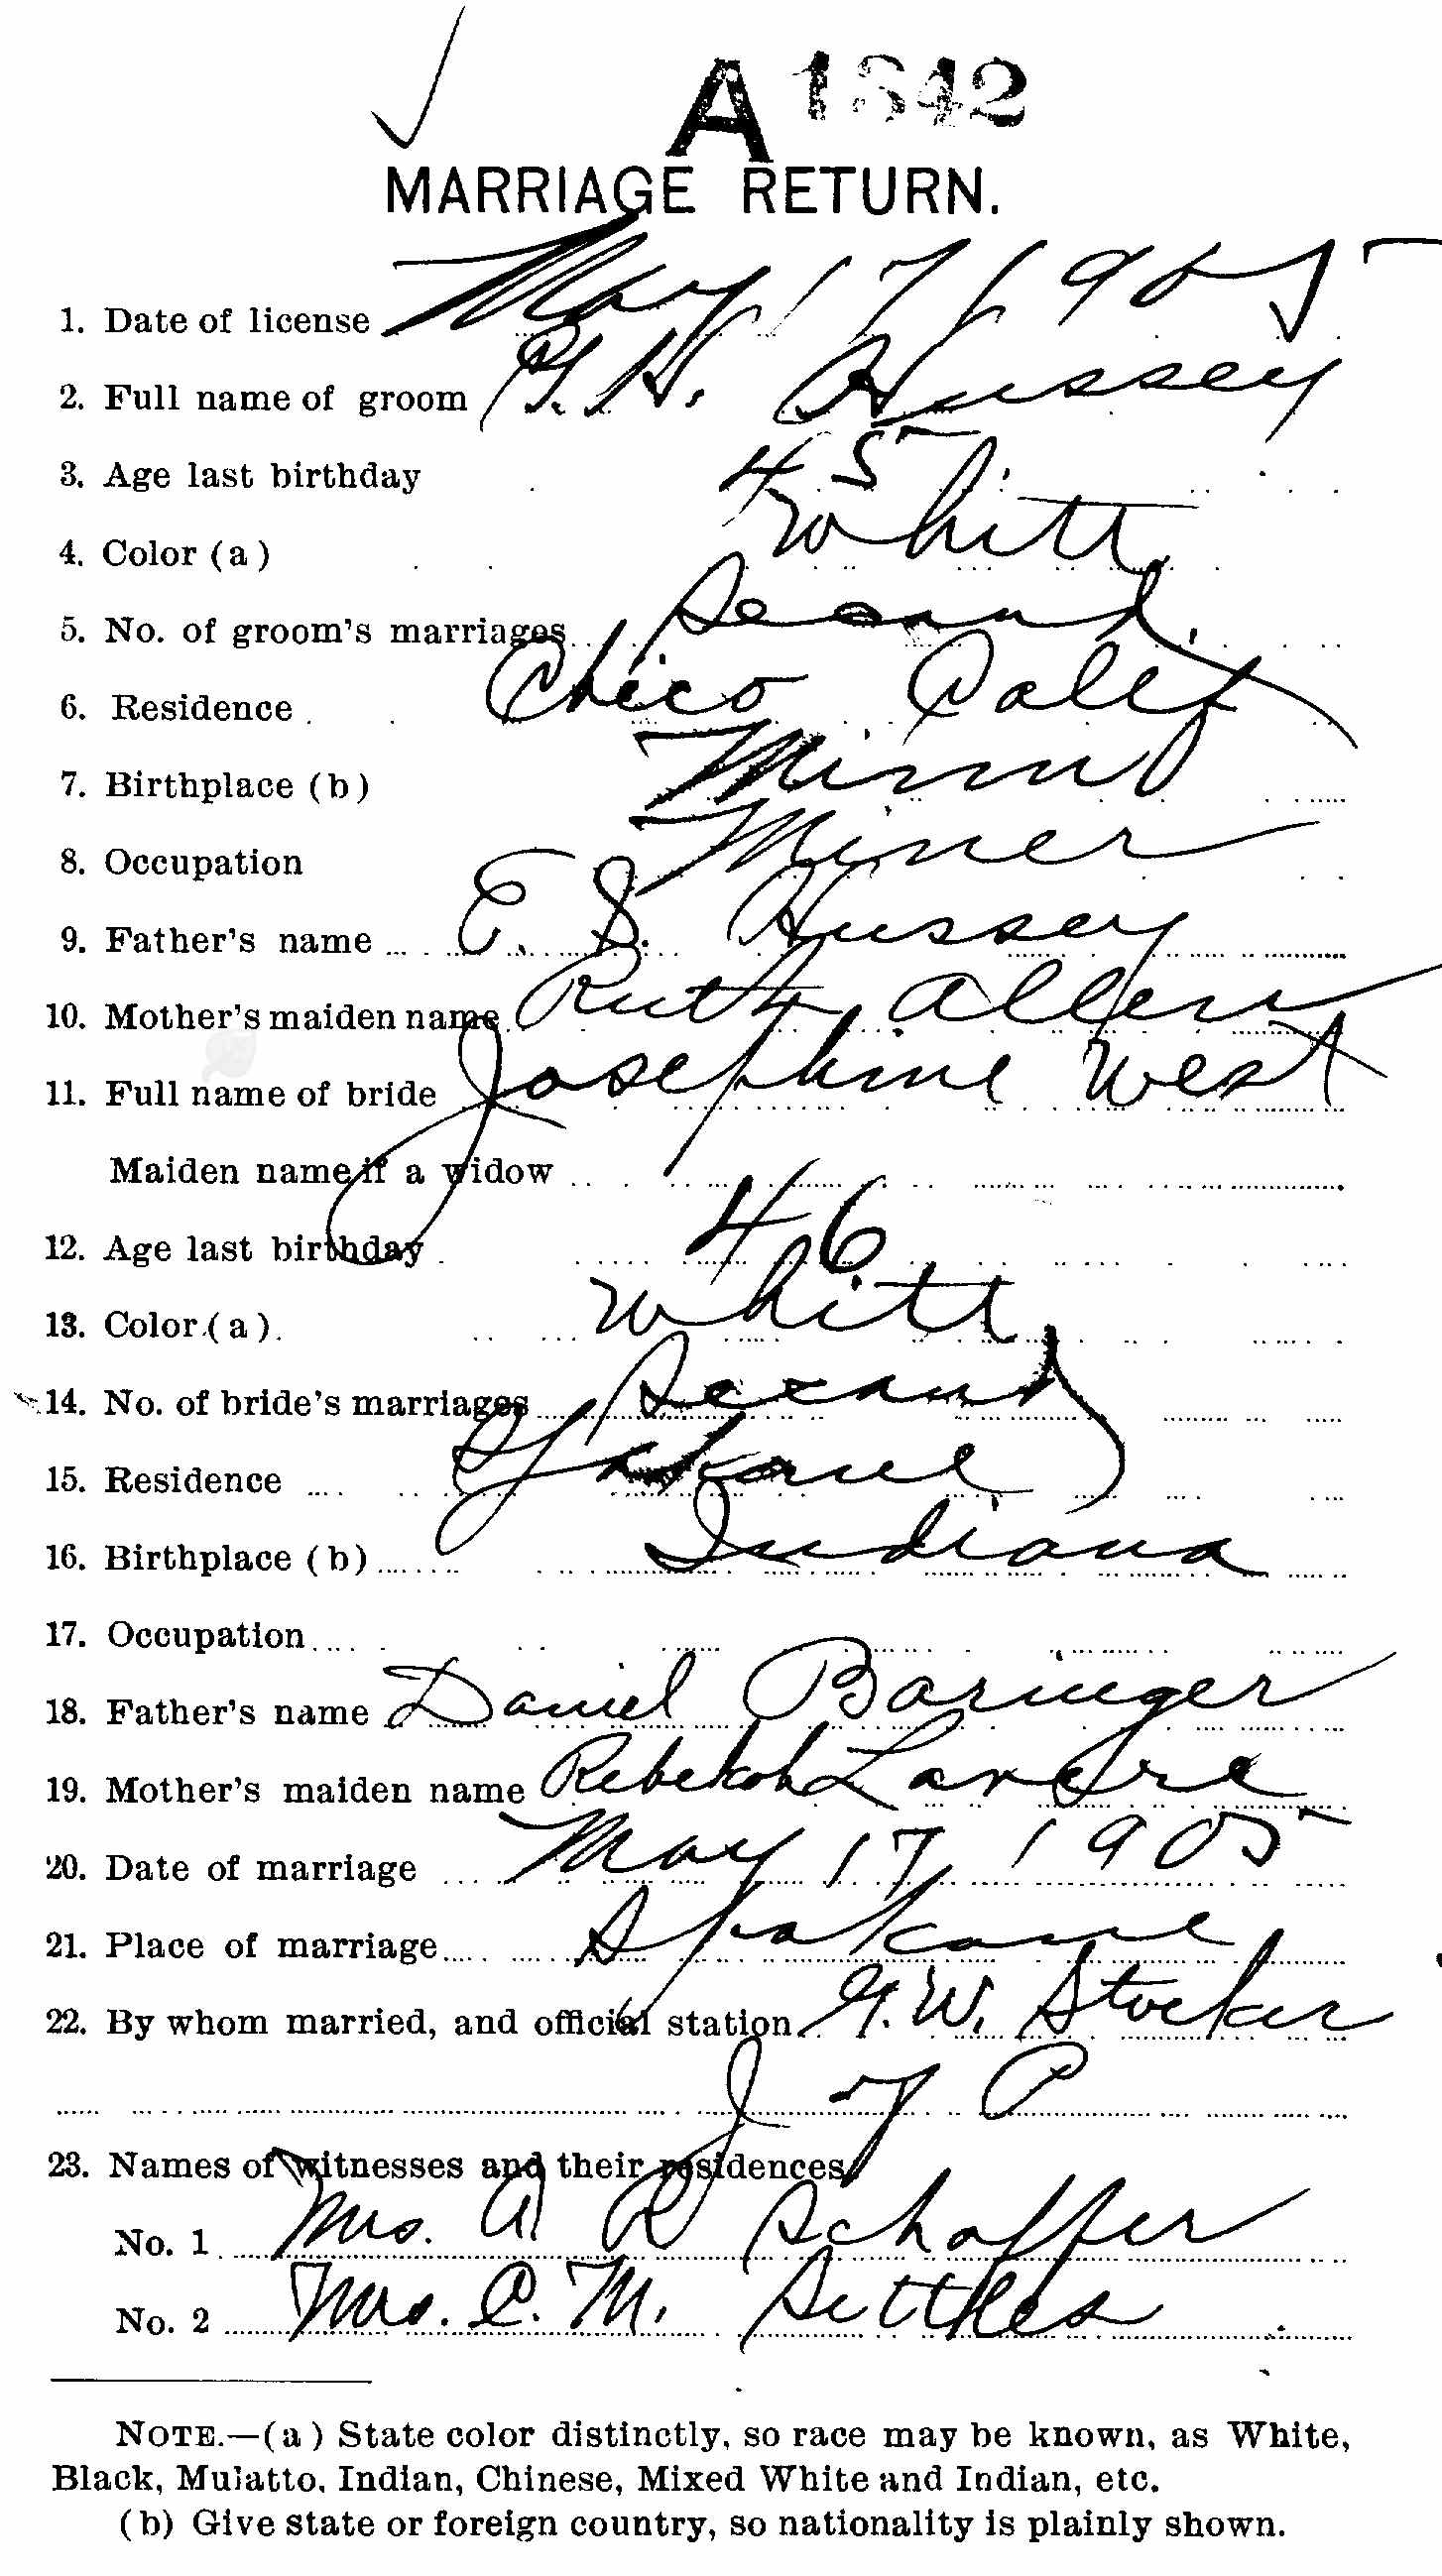 A 1842
MARRIAGE RETURN.
1. Date of license May 17 1905
2. Full name of groom G. H. Hussey
3. Age last birthday 45
4. Color (a) White
5. No. of groom's marriages Second
6. Residence Chico Calif
7. Birthplace (b) Minn
8. Occupation Miner
9. Father's name E. S. Hussey
10. Mother's maiden name Ruth Allen
11. Full name of bride Josephine West
Maiden name if a widow
12. Age last birthday 46
13. Color (a). White
14. No. of bride's marriages Second
15. Residence Spokane
16. Birthplace (b) Indiana
17. Occupation
18. Father's name Daniel Baringer
19. Mother's maiden name Rebekah
20. Date of marriage May 17 1905
21. Place of marriage Spokane
22. By whom married, and official station G. W. Stocker
J of P
23. Names of witnesses and their residences
No. 1 Mrs. A R Schaffer
No. 2 Mrs. C. M. Settles
NOTE.—(a) State color distinctly, so race may be known, as White,
Black, Mulatto, Indian, Chinese, Mixed White and Indian, etc.
(b) Give state or foreign country, so nationality is plainly shown.